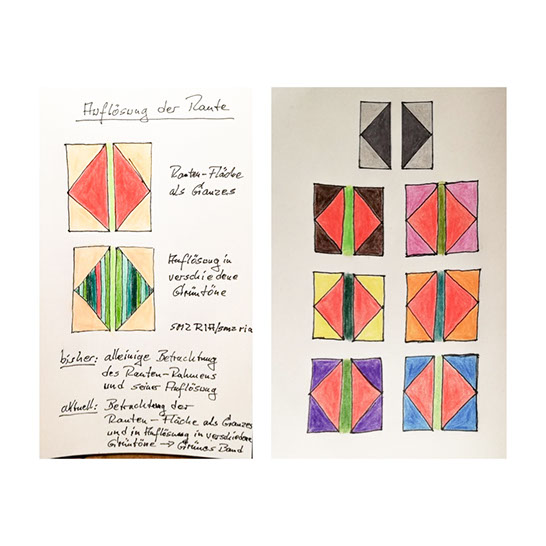 Auflösung der Raute
Rauten-Fläche
als Ganzes
Auflösung in
verschiedene
Grüntöne
bisher: alleinige Betrachtung
des Rauten-Rahmens
und seiner Auflösung
aktuell: Betrachtung der
Rauten-Fläche als Ganzes
und in Auflösung in verschiedene
Grüntöne → Grünes Band